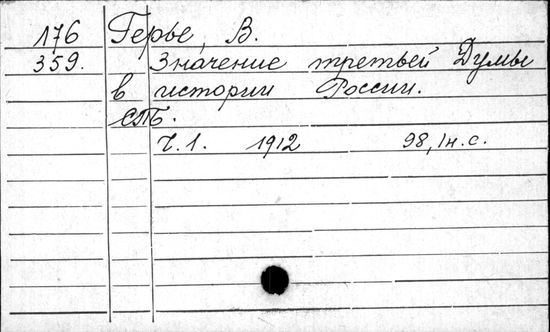 176 Герье, В.
359. Значение третьей Думы
в истории России.
СПб.
Ч.1. 1912 98,1н.с.